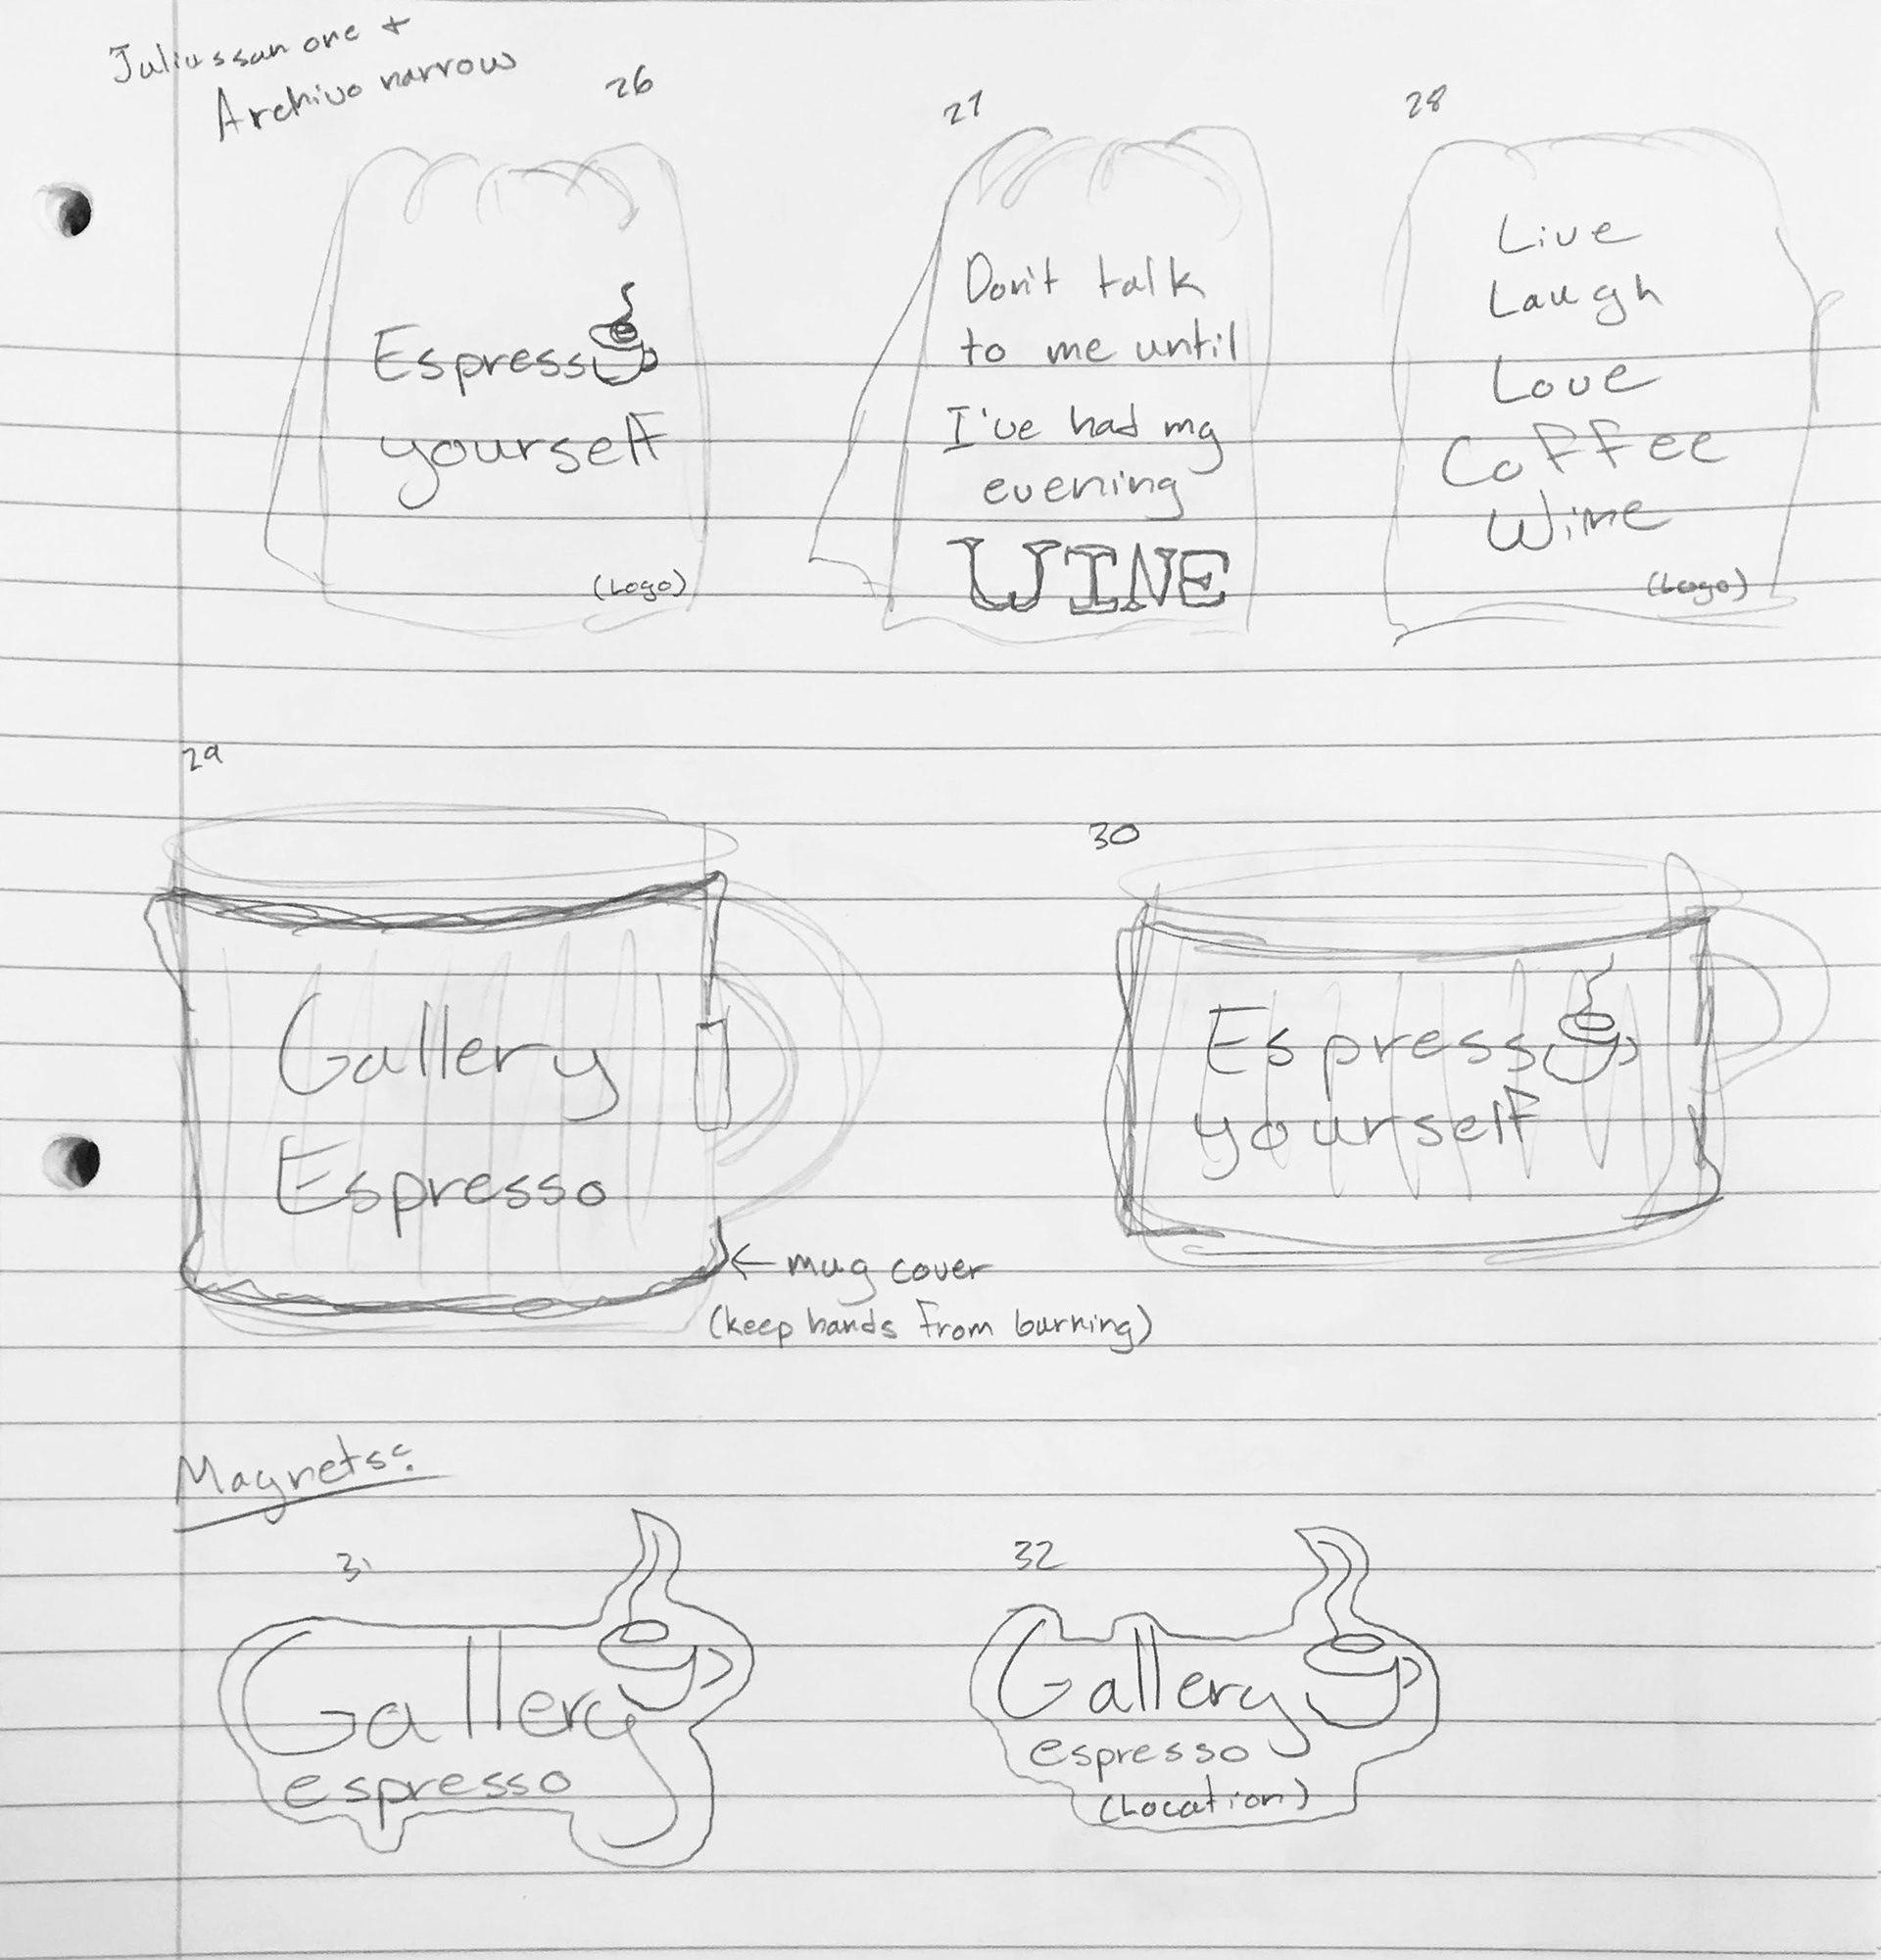 Juliussan one +
Archivo narrow
26
Espress
yourself
(Logo)
27
Don't talk
to me until
I've had my
evening
WINE
28
Live
Laugh
Love
Coffee
Wine
(Logo)
29
Gallery
Espresso
← mug cover
(keep hands from burning)
30
Espress
yourself
Magnets:
31
Gallery
espresso
32
Gallery
espresso
(Location)